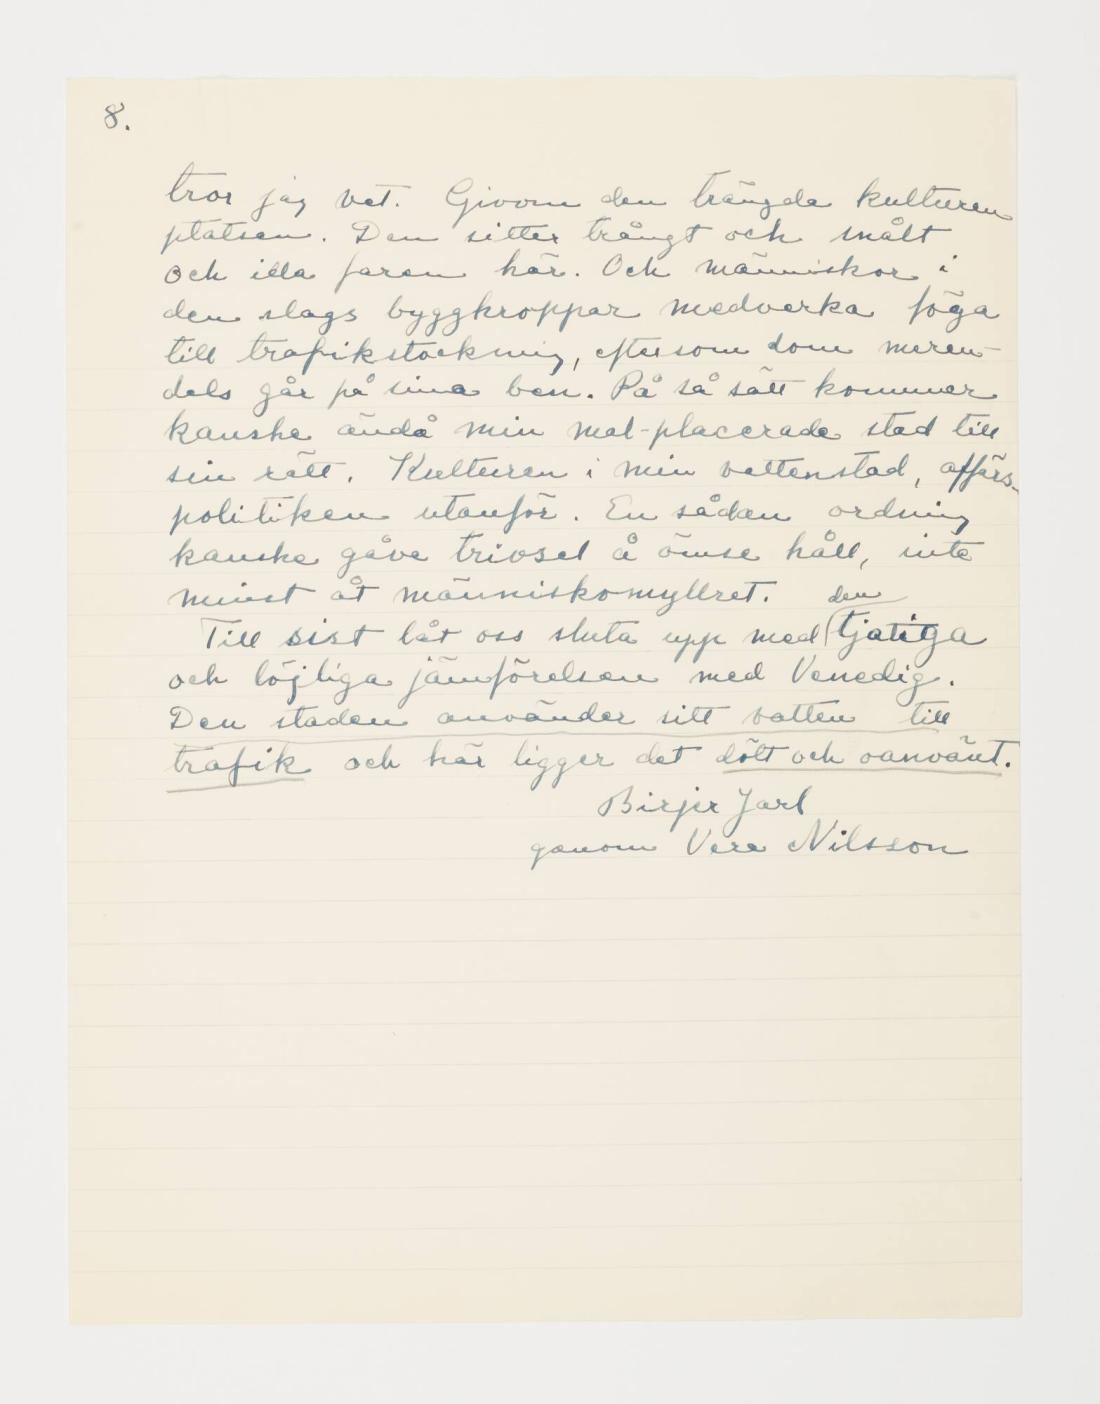 8.
tror jag vet. Givom den trängda kulturen
platsen. Den sitter trångt och snålt
och illa faren här. Och människor i
den slags byggkroppar medverka föga
till trafikstockning, eftersom dom meren-
dels går på sina ben. På så sätt kommer
kanske ändå min mal-placerade stad till
sin rätt. Kulturen i min vattenstad, affärs-
politiken utanför. En sådan ordning
kanske gåve trivsel å ömse håll, inte
minst åt människomyllret.
Till sist låt oss sluta upp med den tjatiga
och löjliga jämförelsen med Venedig.
Den staden använder sitt vatten till
trafik och här ligger det dött och oanvänt.
Birjer Jarl
genom Vera Nilsson